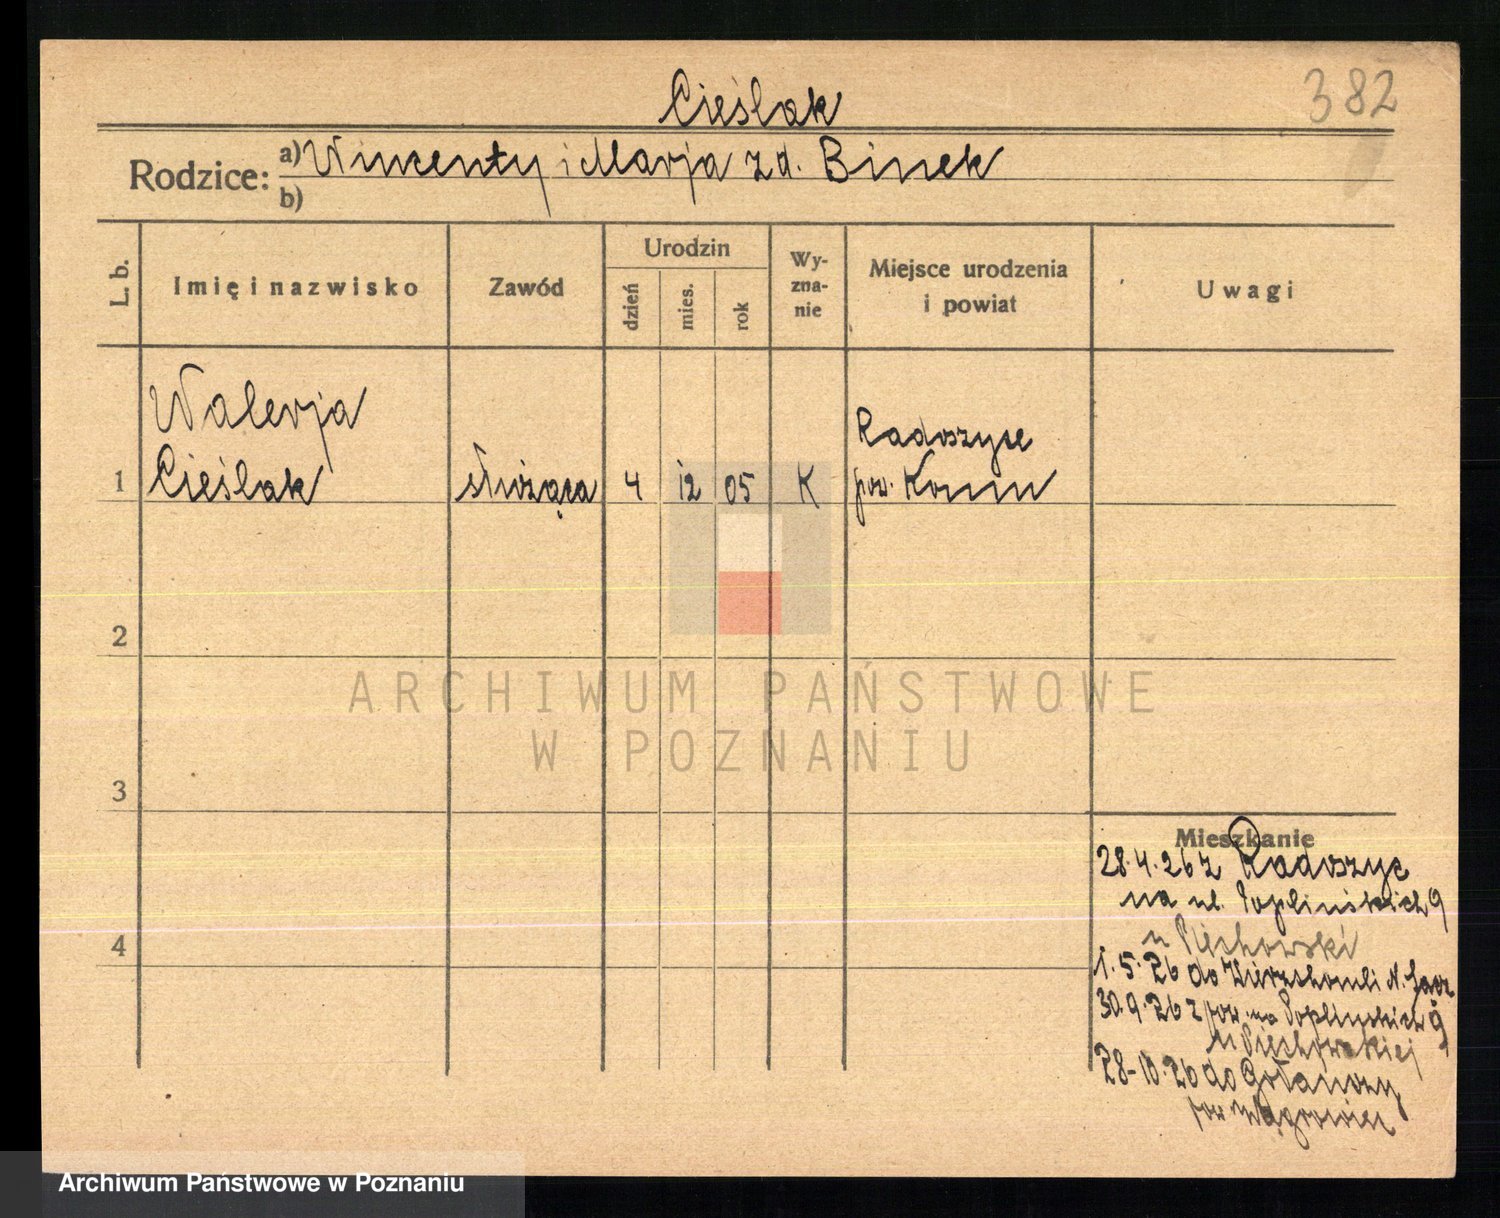 382
Cieślak
Rodzice: a) Wincenty i Marja z d. Binek
b)
L. b.
Imię i nazwisko
Zawód
Urodzin
dzień
mies.
rok
Wy-
zna-
nie
Miejsce urodzenia
i powiat
Uwagi
Walerja
Radoszyce
1 Cieślak służąca 4 12 05 K pow. Konin
2
ARCHIWUM PAŃSTWOWE
W POZNANIU
3
Mieszkanie
28.4.26 z Radoszyc
na ul. Poplińskich 9
u Piechowski
4
1.5.26 do N. Sącz
30.9.26 z pow. na Poplińskich 9
u Piechowskiej
28-10.26 do Gołańczy
pow Wągrowiec
Archiwum Państwowe w Poznaniu